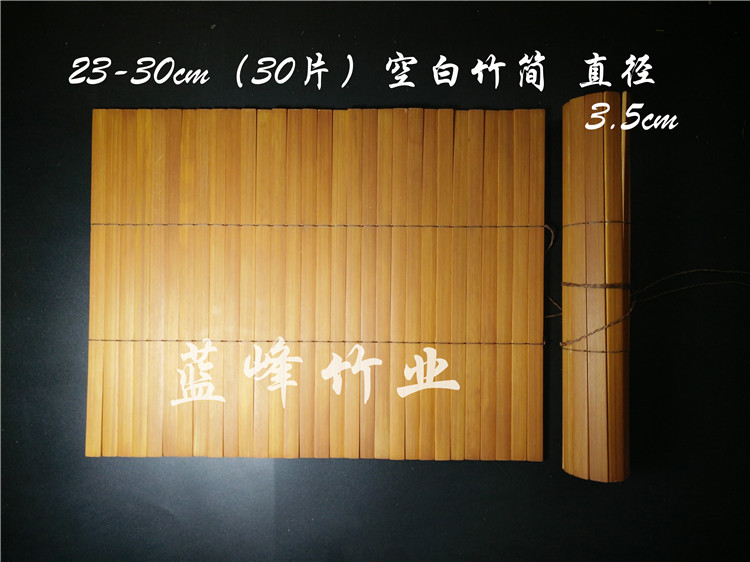 23-30cm（30片）空白竹简 直径
3.5cm
蓝峰竹业